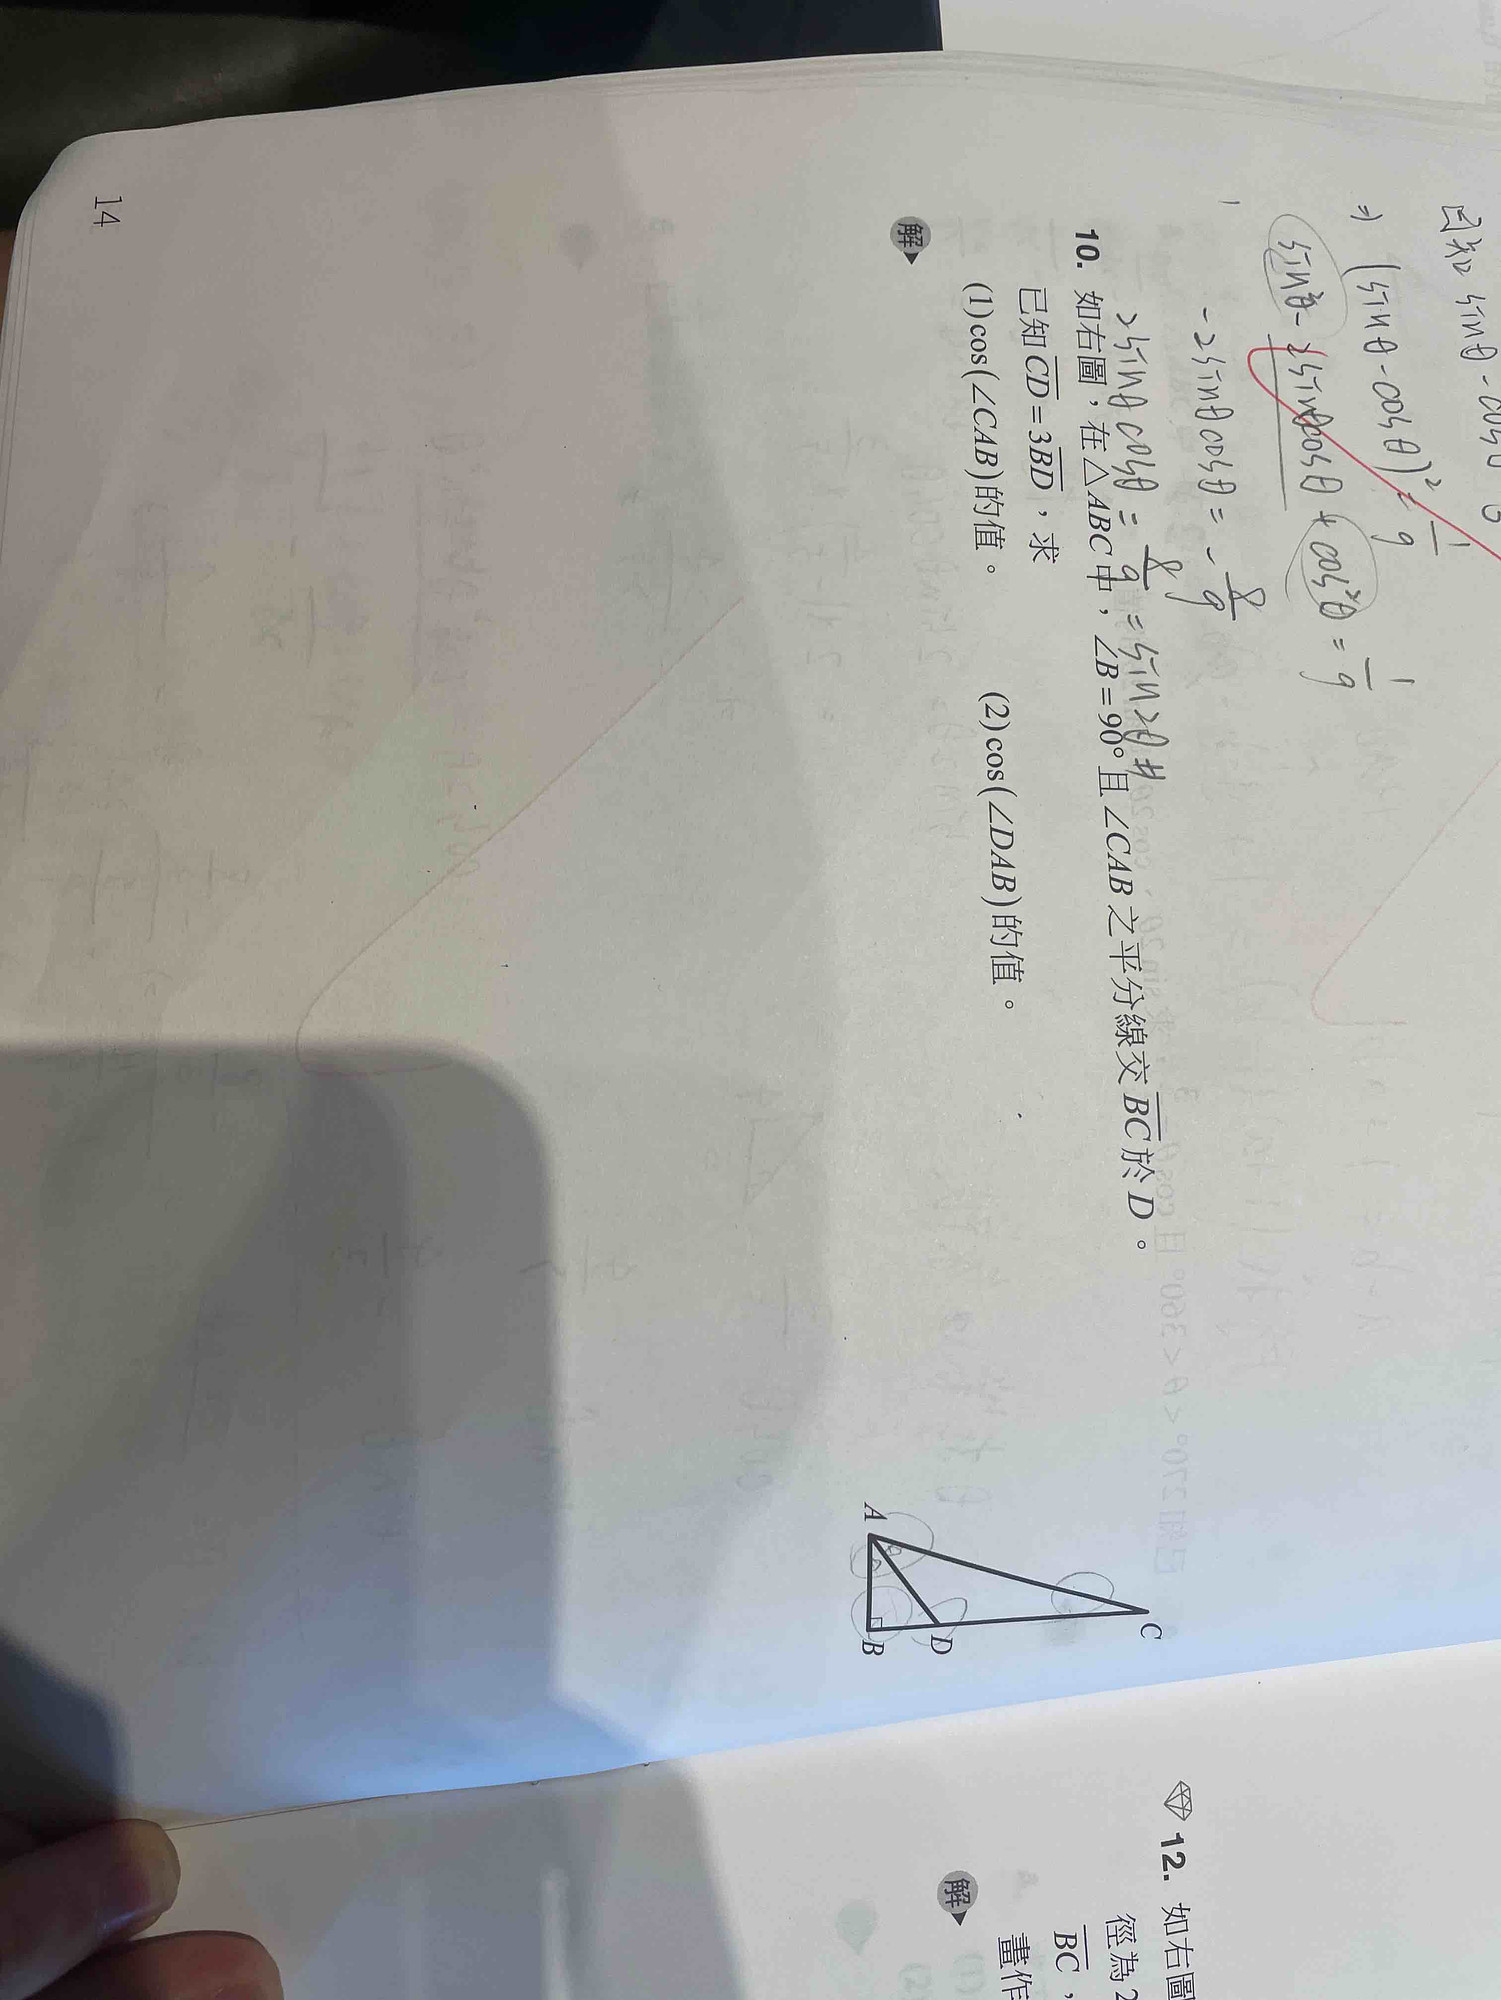 已知 sinθ - cosθ
⇒ (sinθ - cosθ)² = 1/9
sin²θ - 2sinθcosθ + cos²θ = 1/9
-2sinθcosθ = -8/9
2sinθcosθ = 8/9 = sin2θ #
10. 如右圖，在△ABC中，∠B=90°且∠CAB之平分線交BC於D。
已知CD=3BD，求
(1)cos(∠CAB)的值。 (2)cos(∠DAB)的值。
解
C
D
A
B
14
12. 如右圖
徑為2
BC，
畫作
解